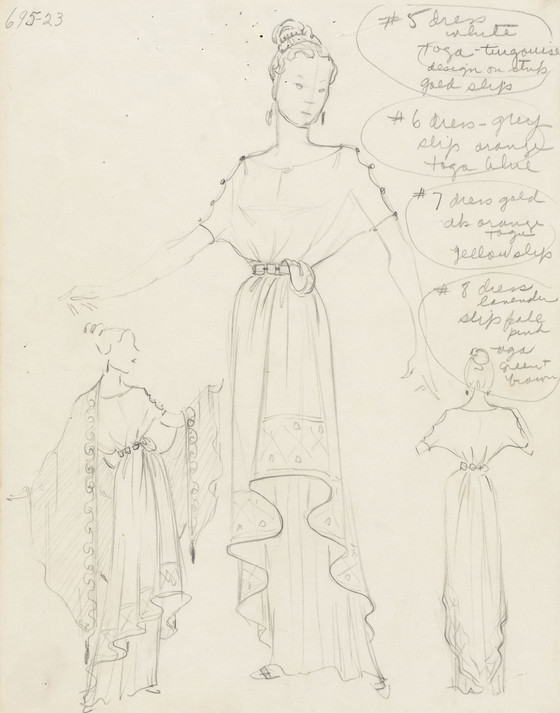 695-23
#5 dress
white
toga-turquoise
design on strip
gold slip
#6 dress-grey
slip orange
toga blue
#7 dress gold
dk orange
toga
yellow slip
#8 dress
lavender
slip pale
pink
toga
green +
brown